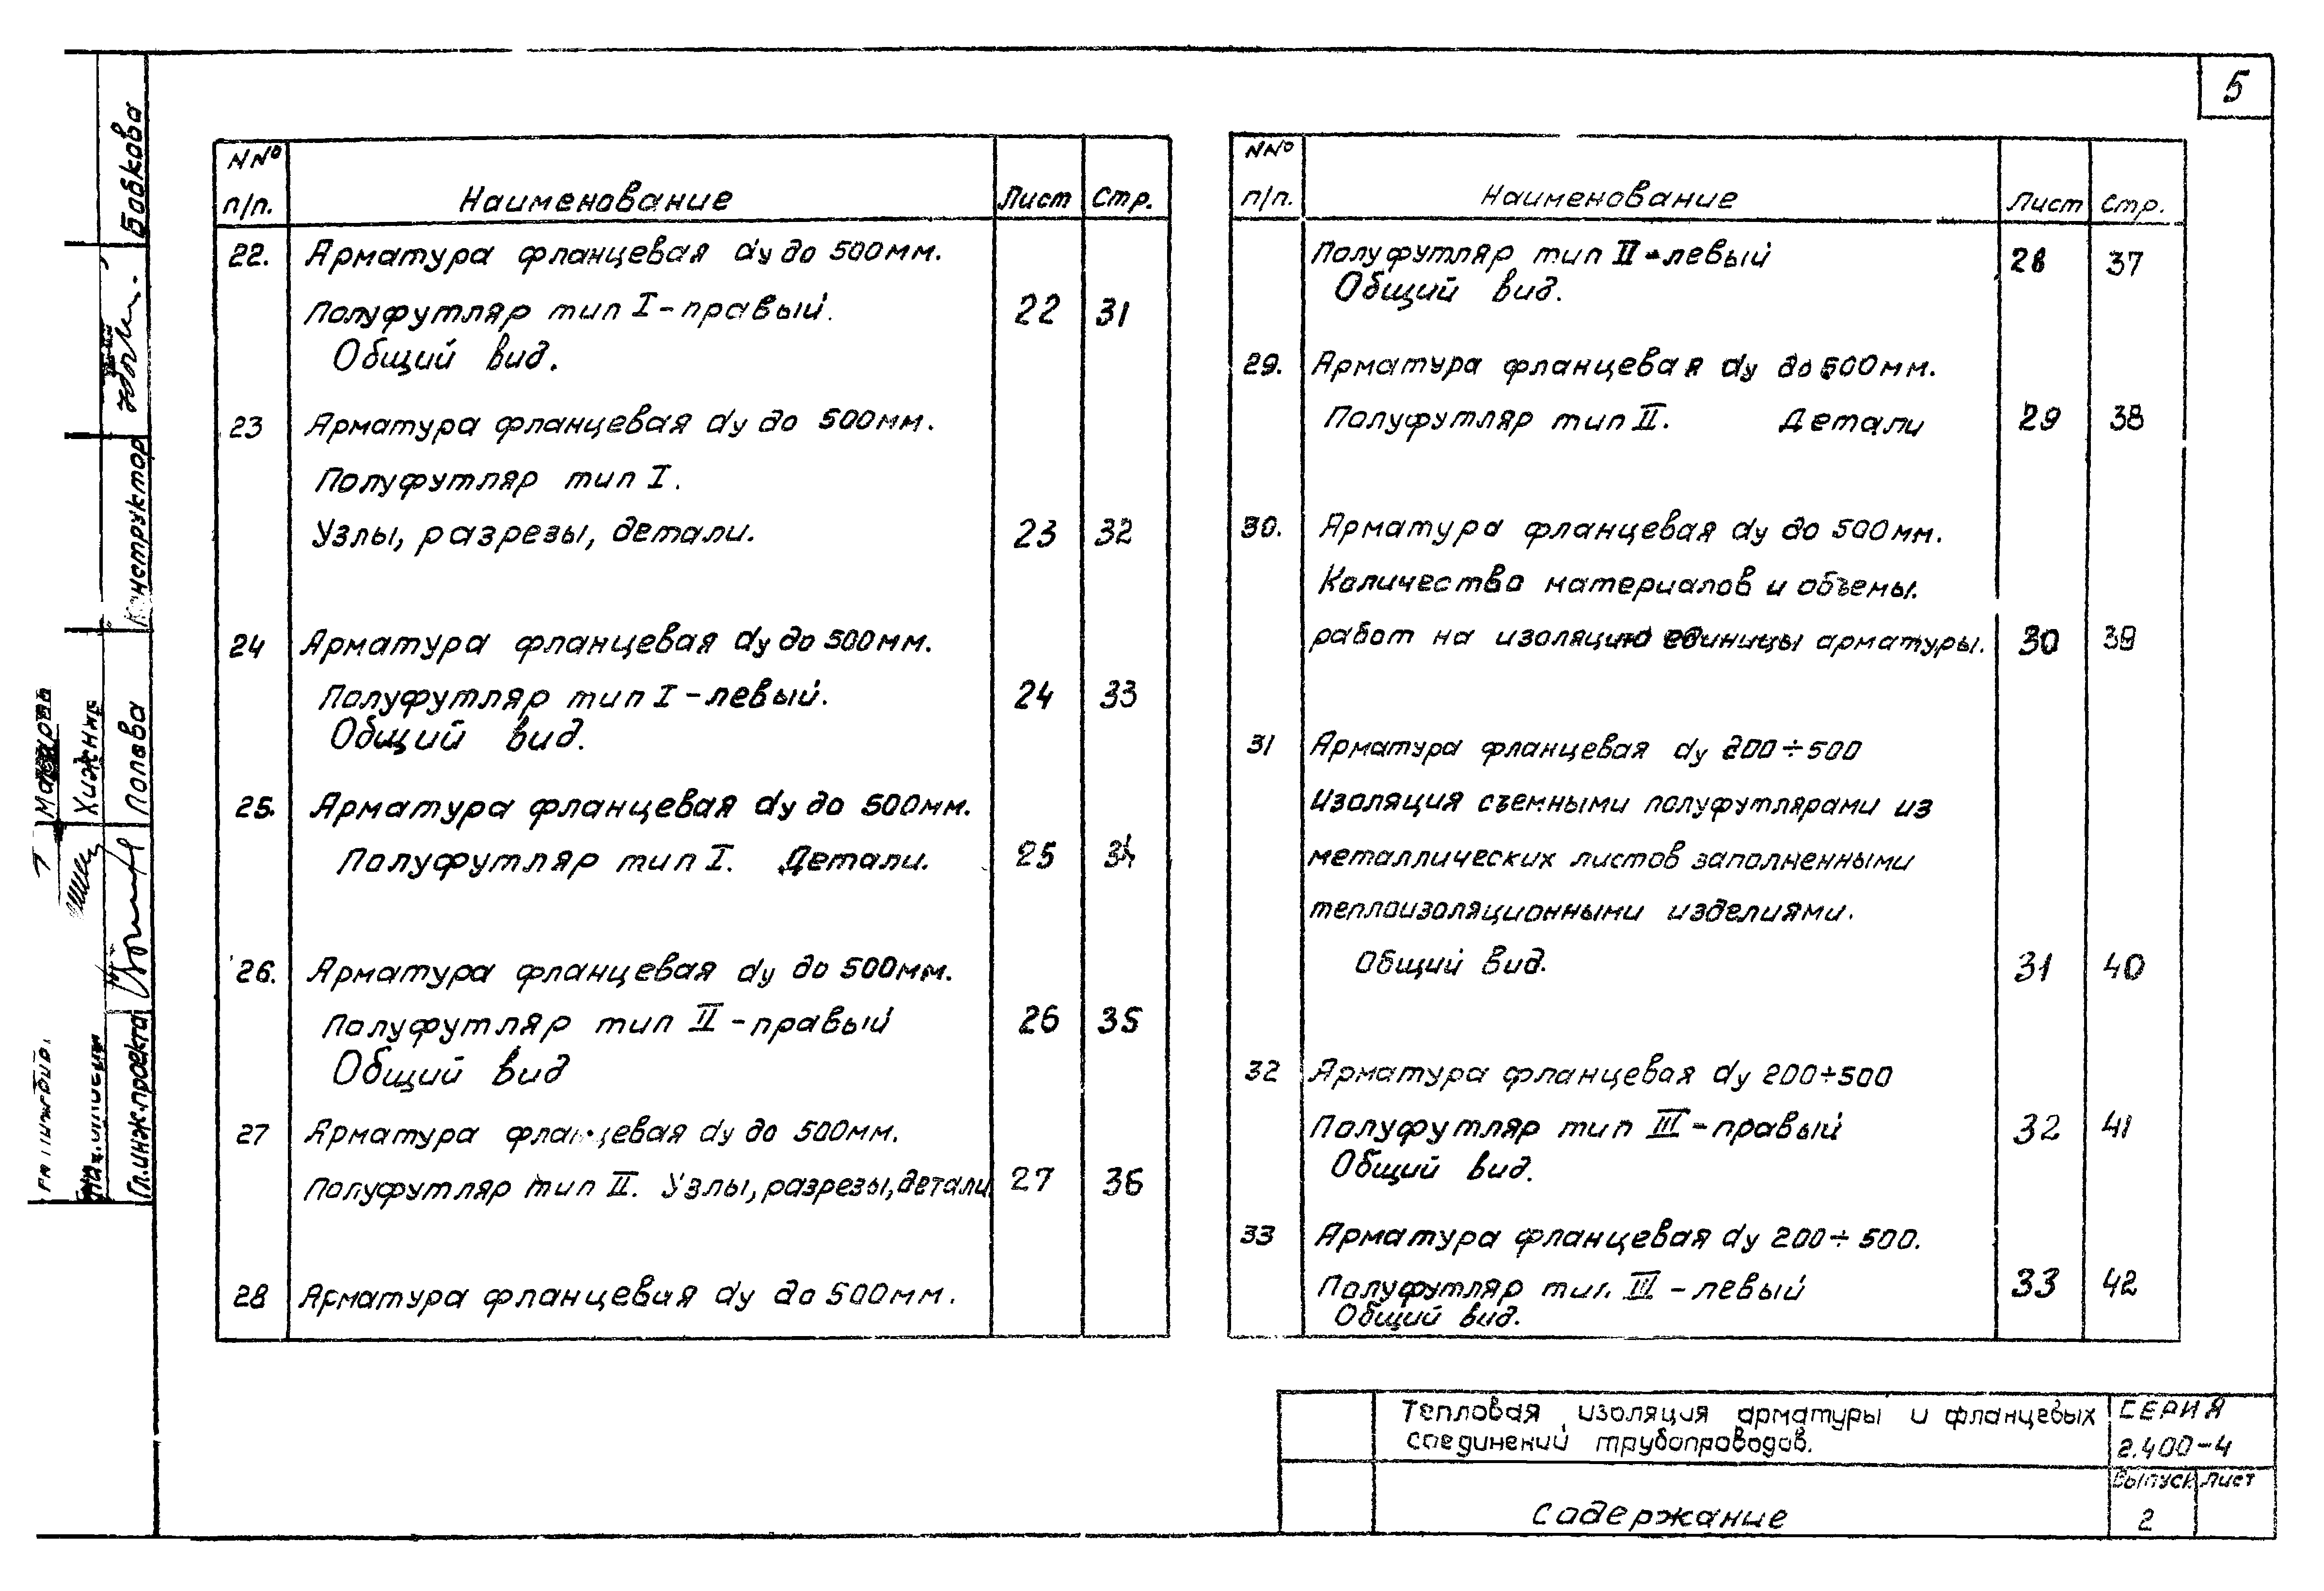 5
NNº
п/п. Наименование Лист Стр.
22. Арматура фланцевая dу до 500мм.
Полуфутляр тип I-правый. 22 31
Общий вид.
23 Арматура фланцевая dу до 500мм.
Полуфутляр тип I.
Узлы, разрезы, детали. 23 32
24 Арматура фланцевая dу до 500мм.
Полуфутляр тип I-левый. 24 33
Общий вид.
25. Арматура фланцевая dу до 500мм.
Полуфутляр тип I. Детали. 25 34
26. Арматура фланцевая dу до 500мм.
Полуфутляр тип II-правый 26 35
Общий вид
27 Арматура фланцевая dу до 500мм.
Полуфутляр тип II. Узлы, разрезы, детали 27 36
28 Арматура фланцевая dу до 500мм.
NNº
п/п. Наименование Лист Стр.
Полуфутляр тип II-левый 28 37
Общий вид.
29. Арматура фланцевая dу до 500мм.
Полуфутляр тип II. Детали 29 38
30. Арматура фланцевая dу до 500мм.
Количество материалов и объемы.
работ на изоляцию единицы арматуры. 30 39
31 Арматура фланцевая dу 200÷500
Изоляция съемными полуфутлярами из
металлических листов заполненными
теплоизоляционными изделиями.
Общий вид. 31 40
32 Арматура фланцевая dу 200÷500
Полуфутляр тип III-правый 32 41
Общий вид.
33 Арматура фланцевая dу 200÷500.
Полуфутляр тип III-левый 33 42
Общий вид.
Тепловая изоляция арматуры и фланцевых
соединений трубопроводов.
СЕРИЯ
2.400-4
Содержание
Выпуск Лист
2
Гл.инж.проекта Попова
Конструктор Бобкова